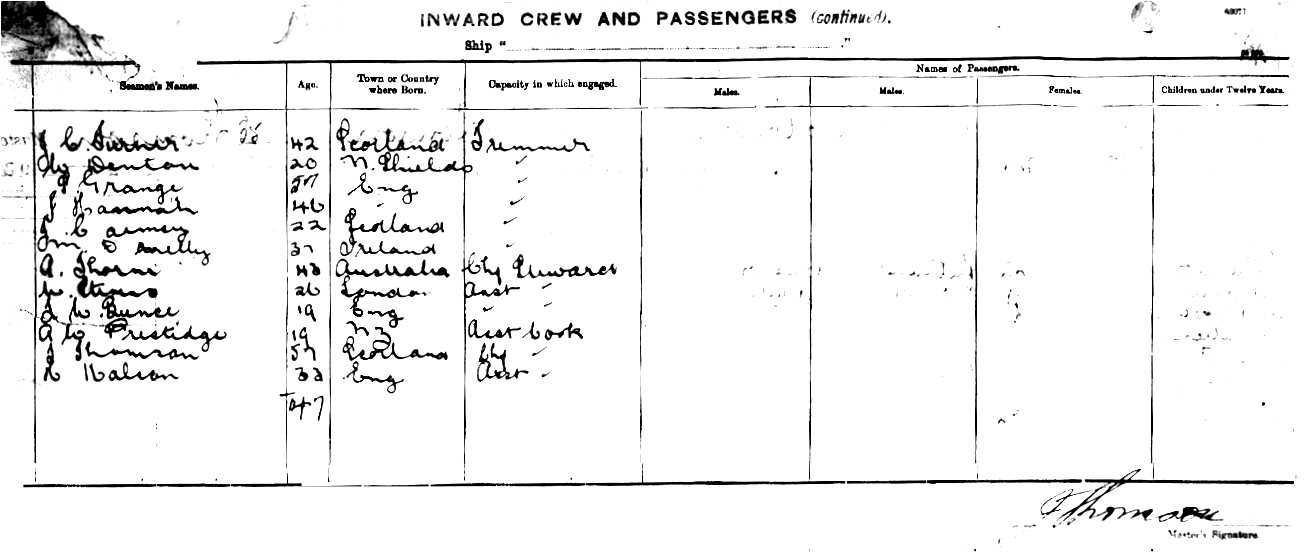 INWARD CREW AND PASSENGERS (continued).
Ship " "
Seamen's Names. Age. Town or Country where Born. Capacity in which engaged. Names of Passengers.
Males. Males. Females. Children under Twelve Years.
J C Turner 42 Scotland Tremmer
W Denton 20 N. Shields "
Grange 57 Eng "
J Hannah 46 " "
J C 22 Scotland "
37 Ireland "
A. Thorne 43 Australia Chf Steward
W. 26 London Asst "
W. Bunce 19 Eng "
A W Prestidge 19 NZ Asst Cook
J Thomson 57 Scotland Chf "
33 Eng Asst "
47
Thomson
Master's Signature